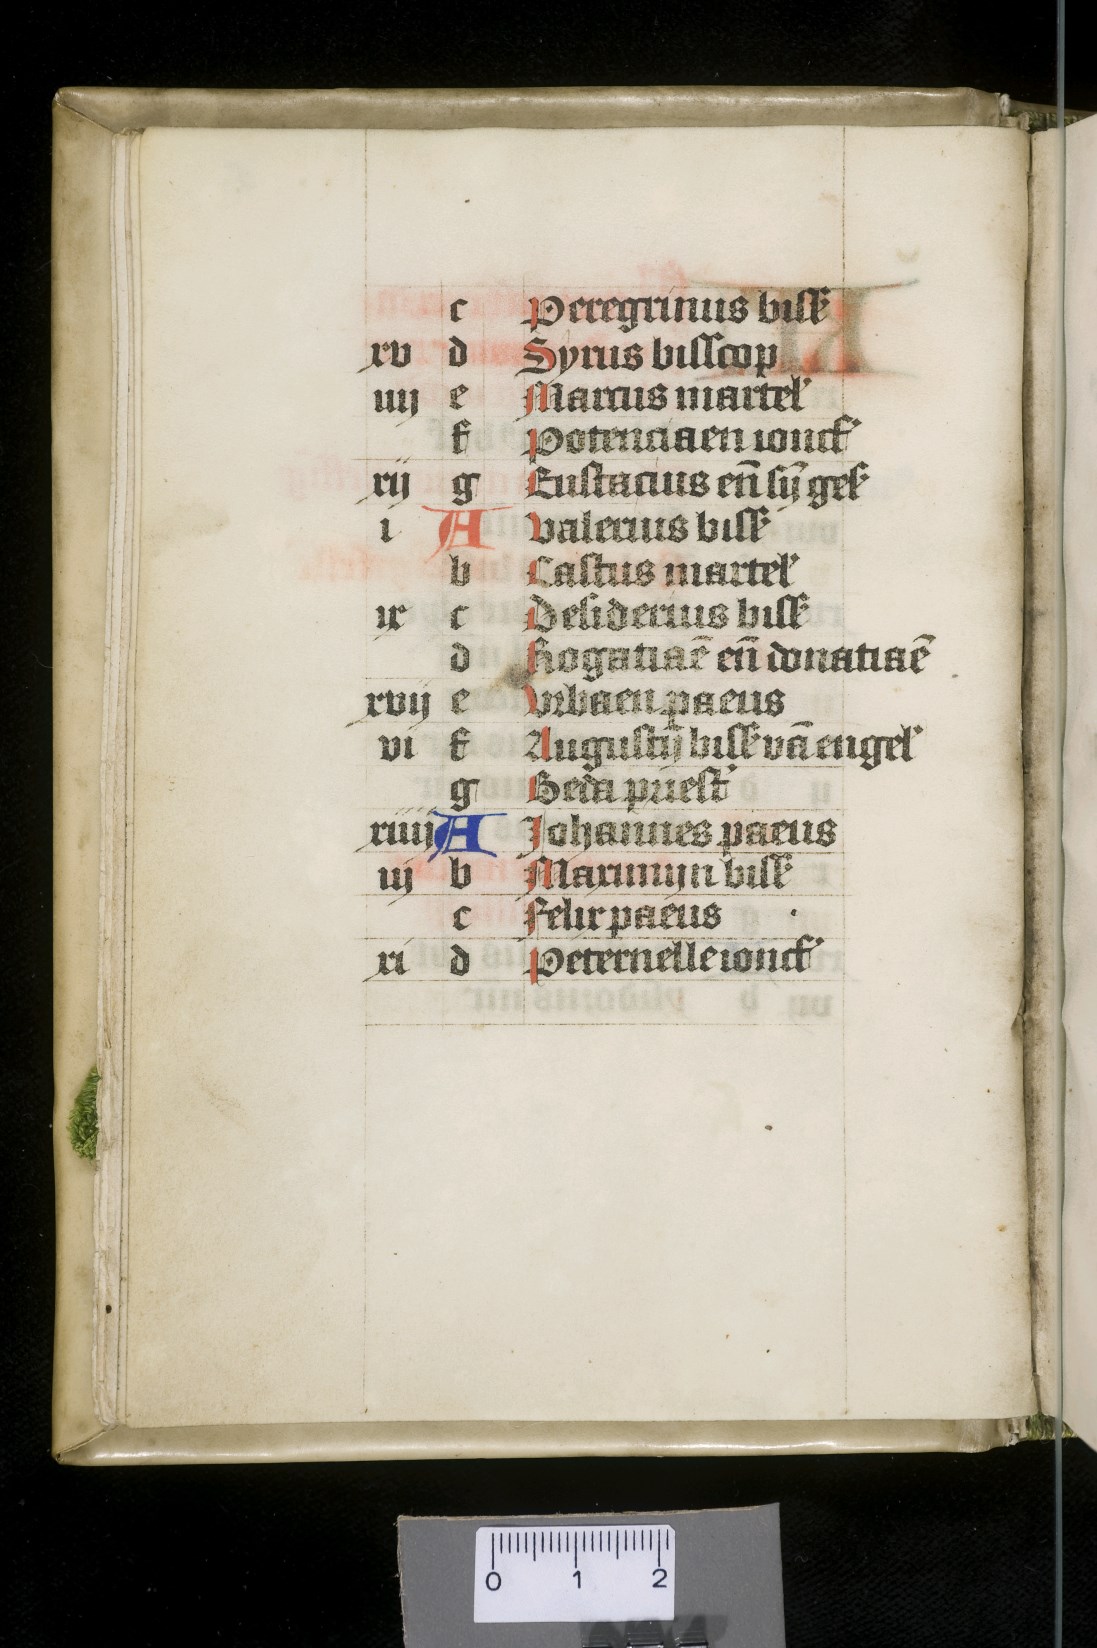 c Peregrinus bisſ
xv d Syrus bisscop
iiij e Marcus martel'
f Potenciaen ionck'
xij g Eustacius en̄ sȳ gesˡ
i A Valerius bisſ
b Castus martel'
ix c Desiderius bisſ
d Rogatiaē en̄ donatiaē
xvij e Vrbaen paeus
vi f Augustij̄ bisſ vā engel'
g Beda priest'
xiiij A Johannes paeus
iij b Maximijn bisſ
c Felix paeus
xi d Peternelle ionck'
0 1 2